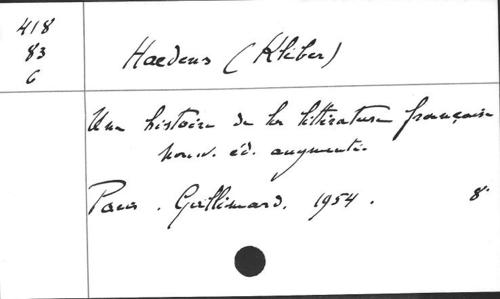 418
83
6
Haedens (Kléber)
Une histoire de la littérature française
nouv. éd. augmenté.
Paris. Gallimard. 1954. 8°